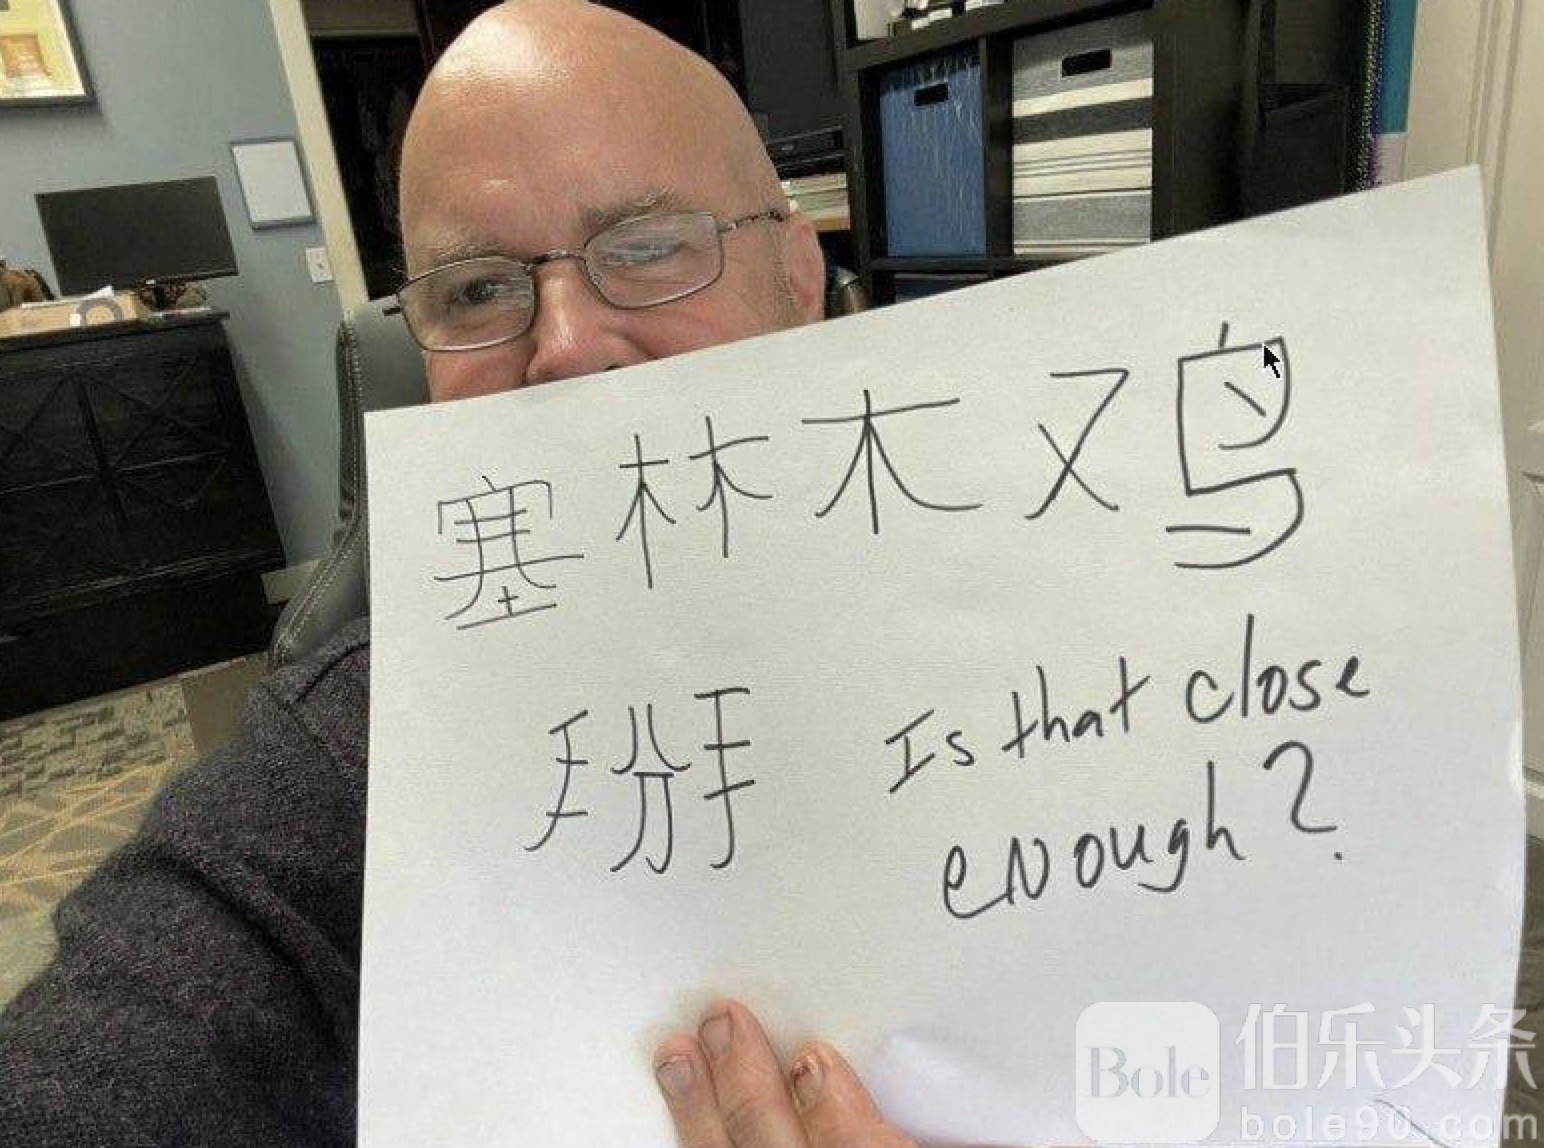 塞林木又鸟
掰 Is that close
enough?
Bole 伯乐头条
bole90.com